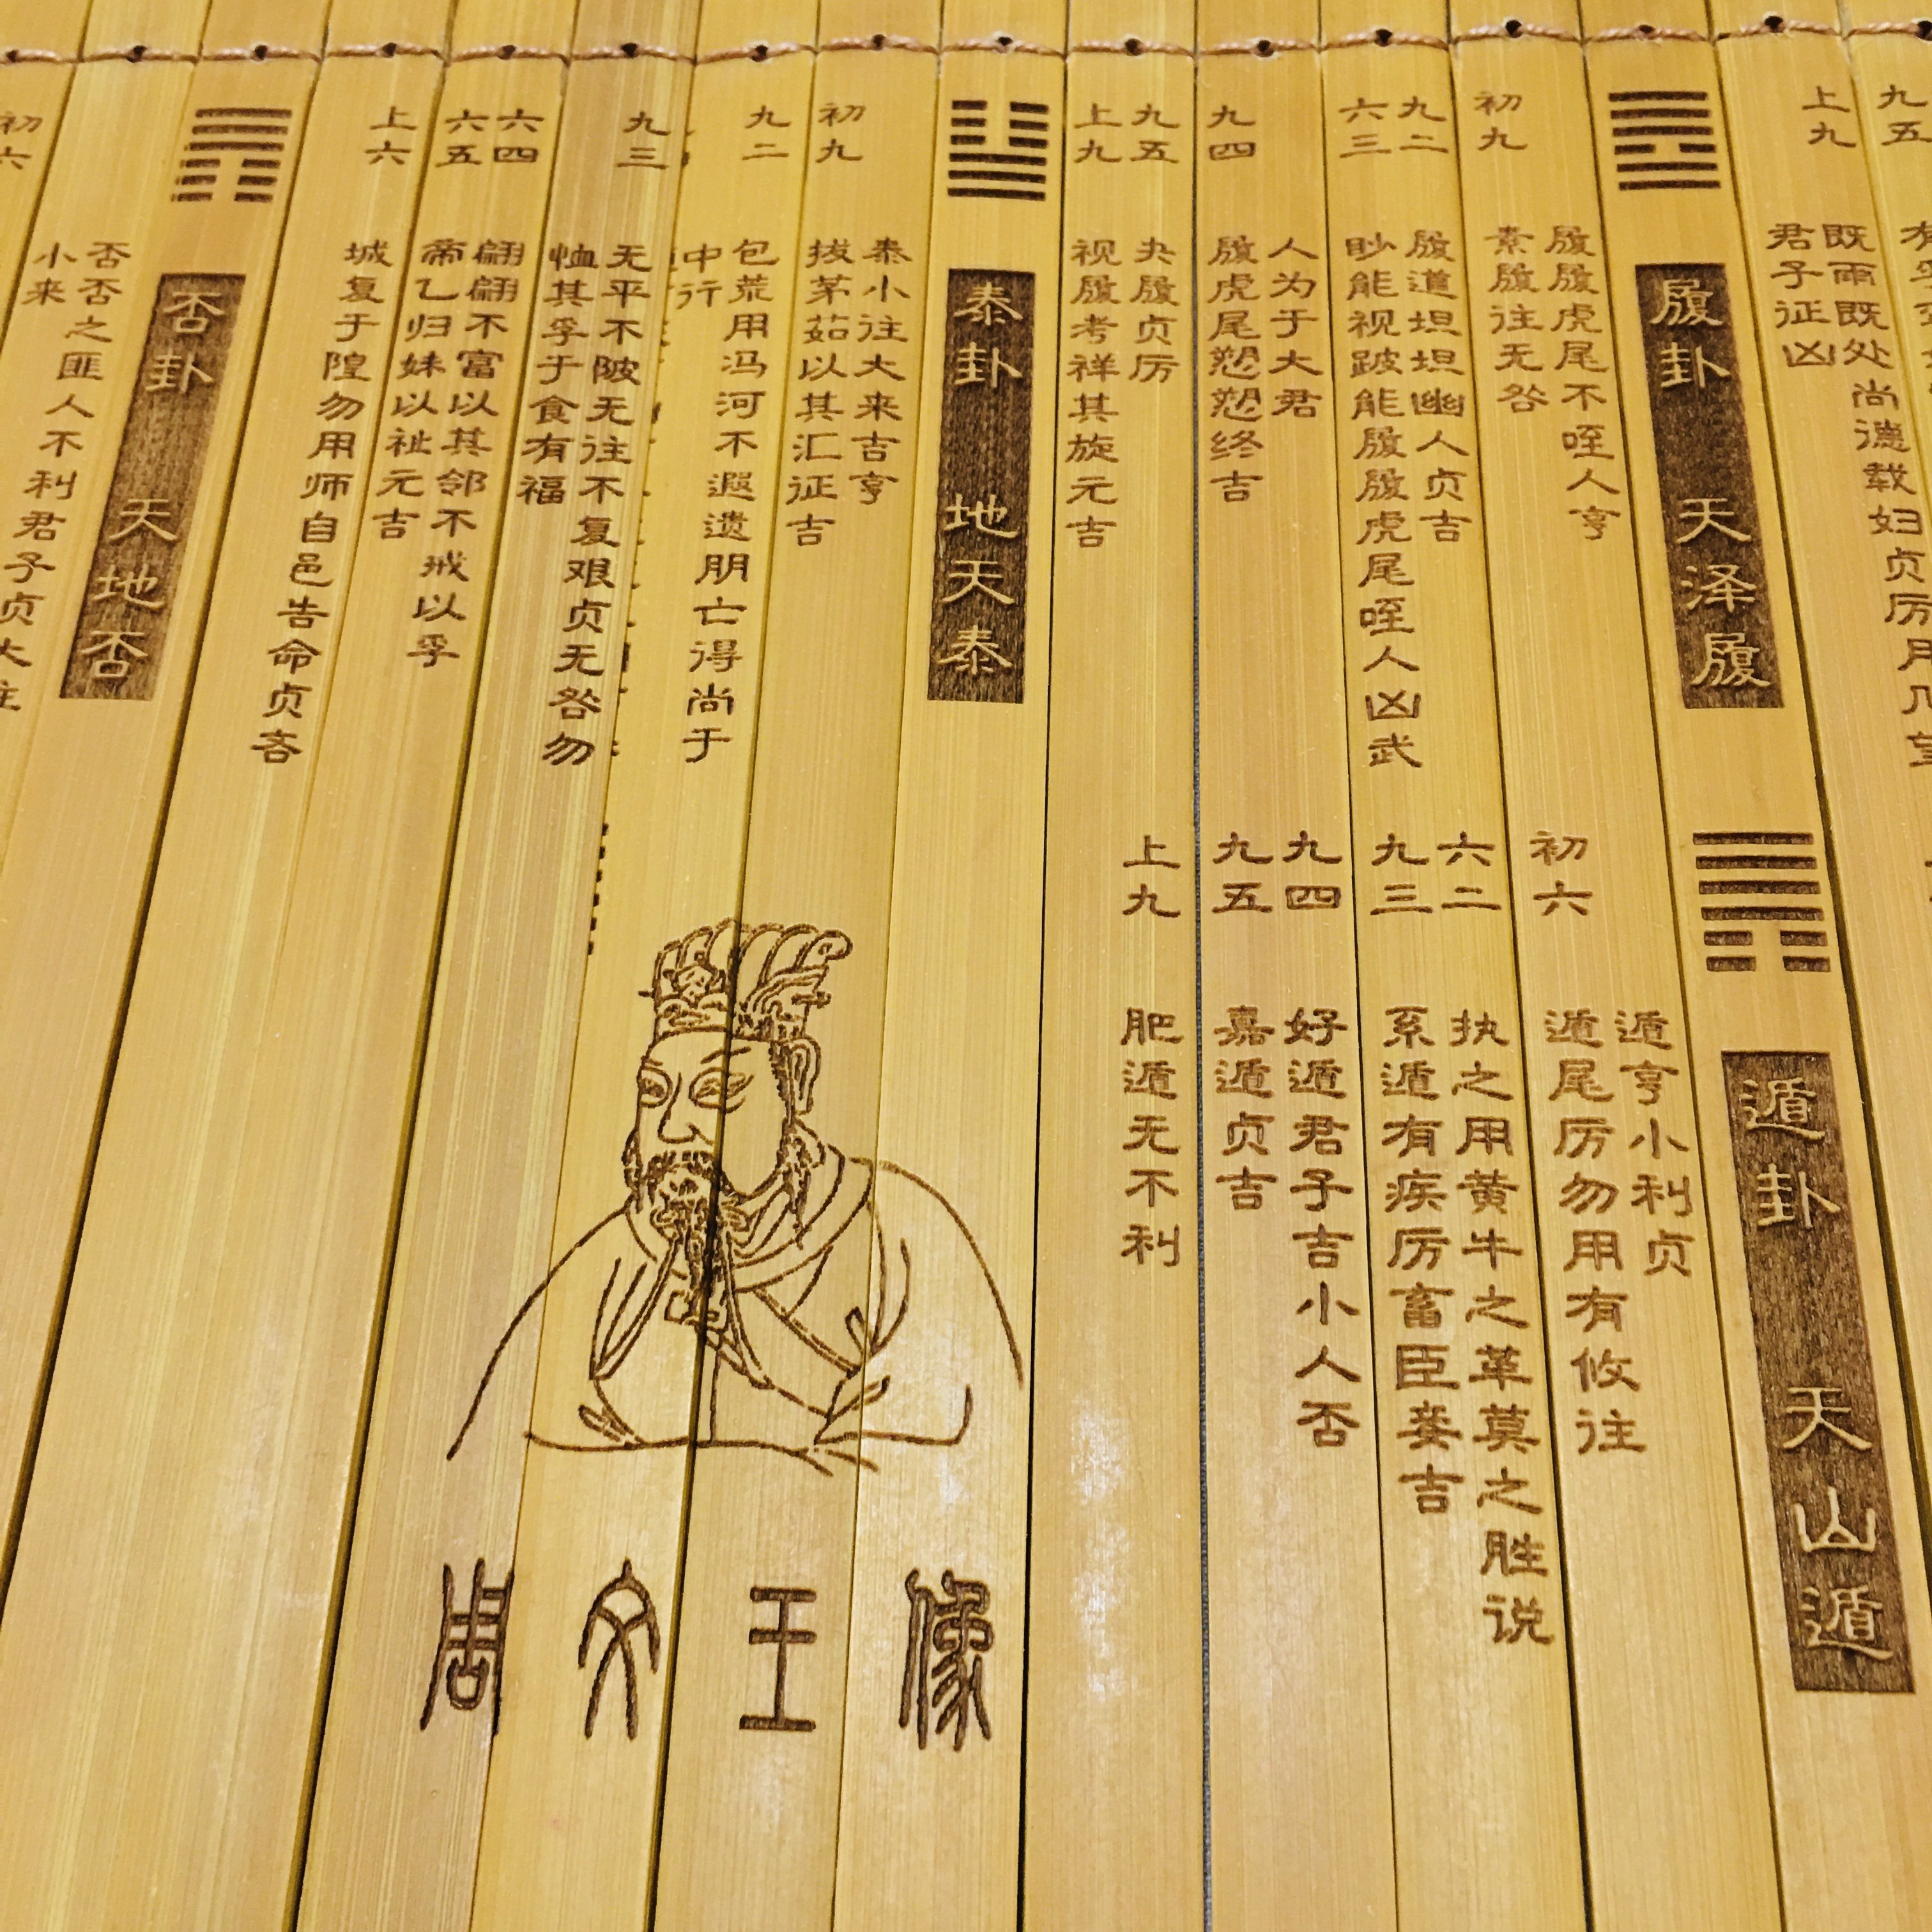 九五
上九 既雨既处尚德载妇贞厉月几望
君子征凶
履卦 天泽履
履履虎尾不咥人亨
初九 素履往无咎
九二 履道坦坦幽人贞吉
六三 眇能视跛能履履虎尾咥人凶武
人为于大君
九四 履虎尾愬愬终吉
九五 夬履贞厉
上九 视履考祥其旋元吉
泰卦 地天泰
泰小往大来吉亨
初九 拔茅茹以其汇征吉
九二 包荒用冯河不遐遗朋亡得尚于
中行
九三 无平不陂无往不复艰贞无咎勿
恤其孚于食有福
六四 翩翩不富以其邻不戒以孚
六五 帝乙归妹以祉元吉
上六 城复于隍勿用师自邑告命贞吝
否卦 天地否
否否之匪人不利君子贞大往
小来
初六
遁卦 天山遁
遁亨小利贞
初六 遁尾厉勿用有攸往
六二 执之用黄牛之革莫之胜说
九三 系遁有疾厉畜臣妾吉
九四 好遁君子吉小人否
九五 嘉遁贞吉
上九 肥遁无不利
周文王像